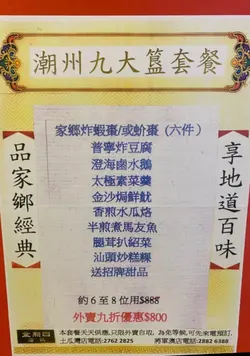 潮州九大簋套餐
享地道百味
品家鄉經典
家鄉炸蝦棗/或蚧棗(六件)
普寧炸豆腐
澄海鹵水鵝
太極素菜羹
金沙焗鮮魷
香煎水瓜烙
半煎煮馬友魚
腿茸扒紹菜
汕頭炒糕粿
送招牌甜品
約6至8位用$888
外賣九折優惠$800
本套餐天天供應,只限外賣自取,為免等候,可先來電預訂.
土瓜灣店電話:2762 2825
將軍澳店電話:2882 6388